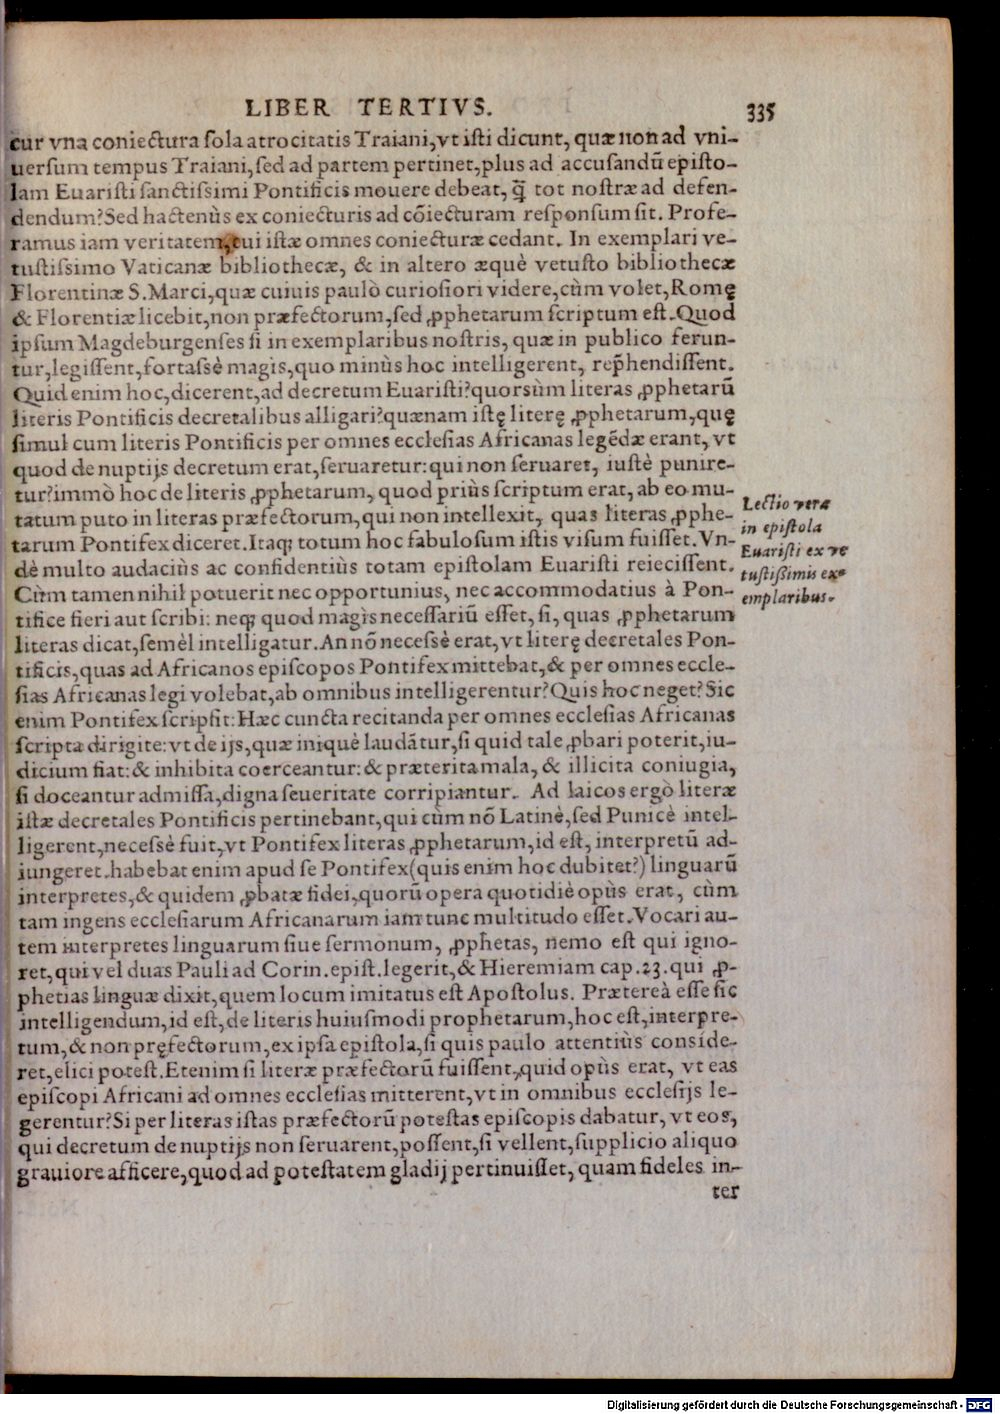 LIBER TERTIVS. 335
cur vna coniectura sola atrocitatis Traiani, vt isti dicunt, quæ non ad vni-
uersum tempus Traiani, sed ad partem pertinet, plus ad accusandū episto-
lam Euaristi sanctissimi Pontificis mouere debeat, q̃ tot nostræ ad defen-
dendum? Sed hactenùs ex coniecturis ad cõiecturam responsum sit. Profe-
ramus iam veritatem, cui istæ omnes coniecturæ cedant. In exemplari ve-
tustissimo Vaticanæ bibliothecæ, & in altero æquè vetusto bibliothecæ
Florentinæ S. Marci, quæ cuiuis paulò curiosiori videre, cùm volet, Romę
& Florentiæ licebit, non præfectorum, sed ꝓphetarum scriptum est. Quod
ipsum Magdeburgenses si in exemplaribus nostris, quæ in publico ferun-
tur, legissent, fortassè magis, quo minùs hoc intelligerent, rep̃hendissent.
Quid enim hoc, dicerent, ad decretum Euaristi? quorsùm literas ꝓphetarū
literis Pontificis decretalibus alligari? quænam istę literę ꝓphetarum, quę
simul cum literis Pontificis per omnes ecclesias Africanas legẽdæ erant, vt
quod de nuptijs decretum erat, seruaretur: qui non seruaret, iustè punire-
tur? immò hoc de literis ꝓphetarum, quod priùs scriptum erat, ab eo mu-
tatum puto in literas præfectorum, qui non intellexit, quas literas ꝓphe-
tarum Pontifex diceret. Itaq; totum hoc fabulosum istis visum fuisset. Vn-
dè multo audaciùs ac confidentiùs totam epistolam Euaristi reiecissent.
Cùm tamen nihil potuerit nec opportunius, nec accommodatius à Pon-
tifice fieri aut scribi: neq; quod magìs necessariū esset, si, quas ꝓphetarum
literas dicat, semèl intelligatur. An nõ necessè erat, vt literę decretales Pon-
tificis, quas ad Africanos episcopos Pontifex mittebat, & per omnes eccle-
sias Africanas legi volebat, ab omnibus intelligerentur? Quis hoc neget? Sic
enim Pontifex scripsit: Hæc cuncta recitanda per omnes ecclesias Africanas
scripta dirigite: vt de ijs, quæ iniquè laudãtur, si quid tale ꝓbari poterit, iu-
dicium fiat: & inhibita coerceantur: & præterita mala, & illicita coniugia,
si doceantur admissa, digna seueritate corripiantur. Ad laicos ergò literæ
istæ decretales Pontificis pertinebant, qui cùm nõ Latinè, sed Punicè intel-
ligerent, necessè fuit, vt Pontifex literas ꝓphetarum, id est, interpretū ad-
iungeret. habebat enim apud se Pontifex (quis enim hoc dubitet?) linguarū
interpretes, & quidem ꝓbatæ fidei, quorū opera quotidiè opùs erat, cùm
tam ingens ecclesiarum Africanarum iam tunc multitudo esset. Vocari au-
tem interpretes linguarum siue sermonum, ꝓphetas, nemo est qui igno-
ret, qui vel duas Pauli ad Corin. epist. legerit, & Hieremiam cap. 23. qui ꝓ-
phetias linguæ dixit, quem locum imitatus est Apostolus. Prætereà esse sic
intelligendum, id est, de literis huiusmodi prophetarum, hoc est, interpre-
tum, & non pręfectorum, ex ipsa epistola, si quis paulo attentiùs conside-
ret, elici potest. Etenim si literæ præfectorū fuissent, quid opùs erat, vt eas
episcopi Africani ad omnes ecclesias mitterent, vt in omnibus ecclesijs le-
gerentur? Si per literas istas præfectorū potestas episcopis dabatur, vt eos,
qui decretum de nuptijs non seruarent, possent, si vellent, supplicio aliquo
grauiore afficere, quod ad potestatem gladij pertinuisset, quam fideles in-
ter
Lectio vera
in epistola
Euaristi ex ve
tustissimis ex-
emplaribus.
Digitalisierung gefördert durch die Deutsche Forschungsgemeinschaft - DFG